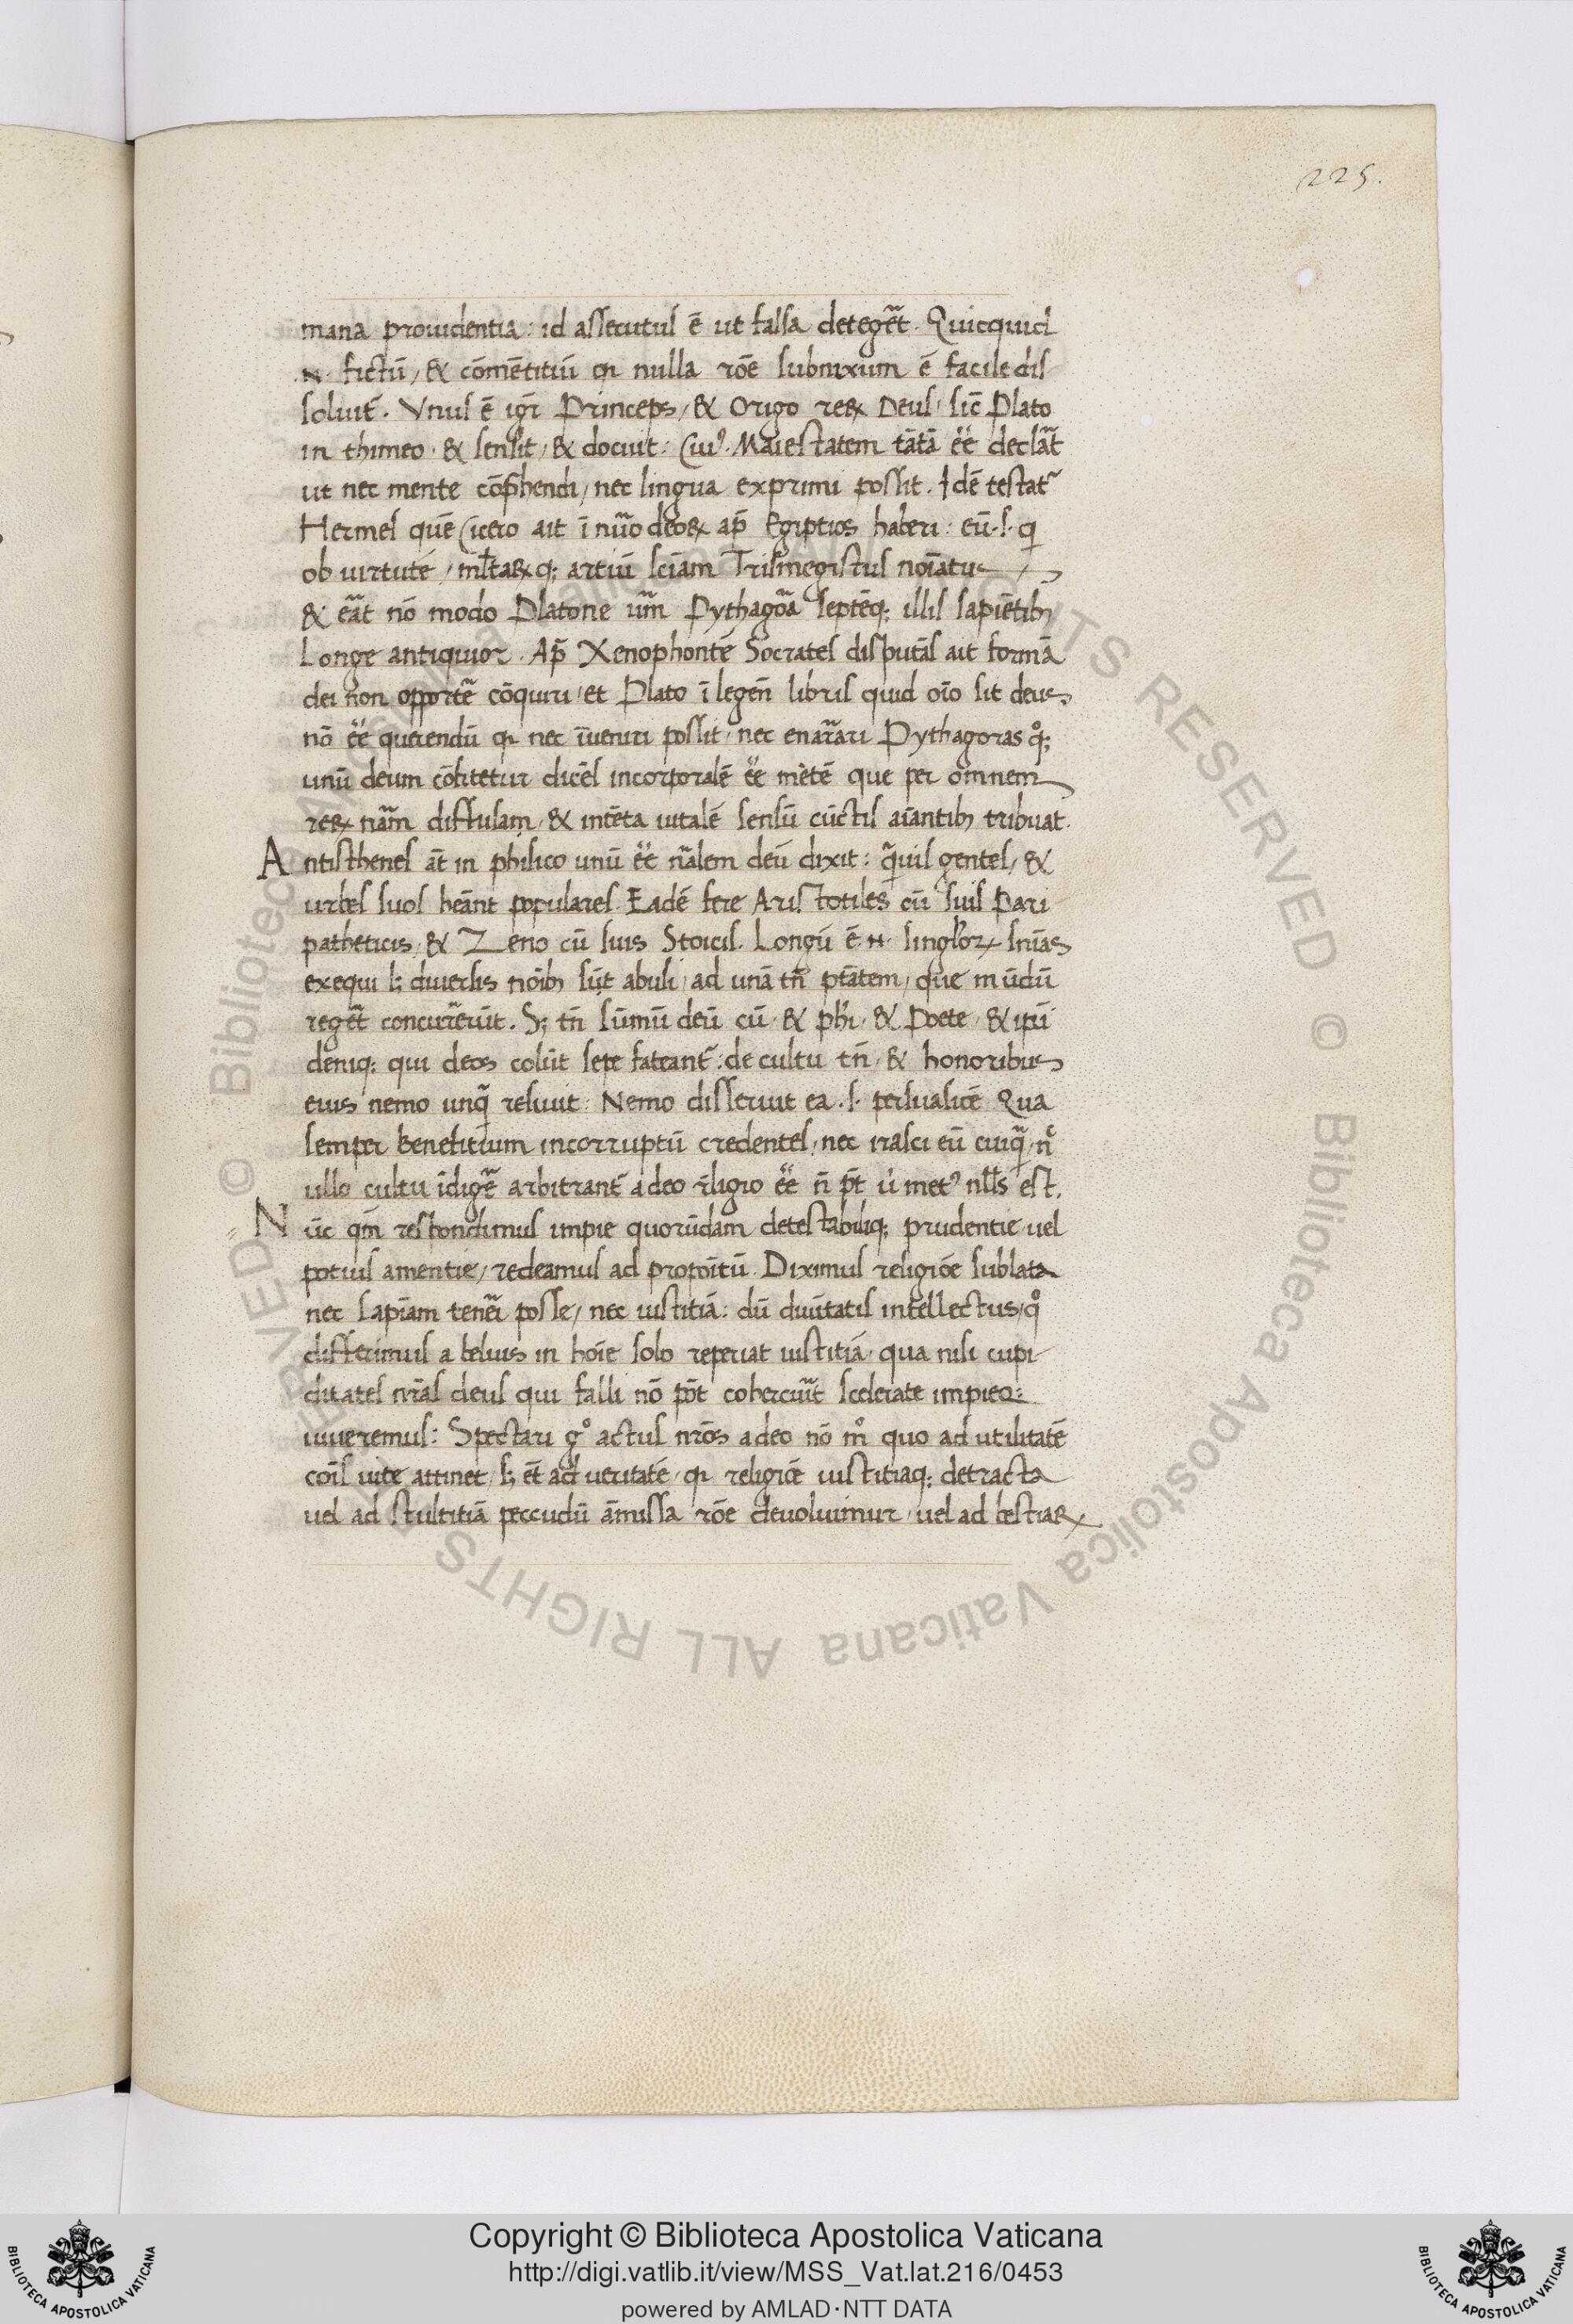 225.
mana prouidentia: id assecutus ē ut falsa detegēt. Quicquid
.N. fictū, & cōmētitiū qr nulla rōe subnixum ē facile dis
soluit̄. Vnus ē igr̄ Princeps, & Origo rerꝝ Deus, sic̄ Plato
in thimeo & sensit, & docuit: Cuiꝰ Maiestatem tātā ēē declāt
ut nec mente cōp̄hendi, nec lingua exprimi possit. Idē testat̄
Hermes quē Cicero ait ī nūo deoꝝ ap̄ Egiptios haberi: eū .s. qi
ob uirtutē, ml̄taꝝq; artiū sciām Trismegistus noīatus
& eāt nō modo Platone um̄ Pythagoā septēq; illis sapiētibꝫ
Longe antiquior. Ap̄ Xenophontē Socrates disputās ait formā
dei non opportē cōquiri, et Plato ī legen̄ libris quid oīo sit deus
nō ēē querendū qr nec īueniri possit, nec enarrāri Pythagoras qͦ;
unū deum cōfitetur dicēs incorporalē ēē mētē que per omnem
rerꝝ nām diffusam, & intēta uitalē sensū cūctis aīantibꝫ tribuat.
Antisthenes āt in phisico unū ēē nālem deū dixit: q̄uis gentes, &
urbes suos heānt populares. Eadē fere Aristotiles cū suis Pari
patheticis, & Zeno cū suis Stoicis. Longū ē .N. singl̄oꝝ sn̄ias
exequi sꝫ diuersis noībꝫ sūt abusi, ad unā tn̄ ptātem, que mūdū
regēt concurrērūt. Sꝫ tn̄ sūmū deū cū & phī, & Poete, & ipī
deniq; qui deos colūt sepe fateant̄: de cultu tn̄, & honoribus
eius nemo unq̄ reliuit: Nemo disseruit ea .s. persuasiōe Qua
semper beneficium incorruptū credentes, nec irasci eū cuiq̄, nͨ
ullo cultu īdigē arbitrant̄ adeo rligio ēē n̄ pt̄ ui metꝰ nlls est.
Nūc qm̄ respondimus impie quorūdam detestabiliq; prudentie, uel
potius amentie, redeamus ad propoītū. Diximus religiōe sublata
nec sapiam tenēi posse, nec iustitiā: dū diuītatis intellectus, qͦ
differimus a beluis in hoīe solo reperiat iustitiā, qua nisi cupi
ditates nr̄as deus qui falli nō pōt cohercuīt scelerate impieq;
uiueremus: Spectari gͦ actus nr̄os adeo nō mͦ quo ad utilitatē
cois uite attinet, sꝫ ēt ad ueritatē, qr religiōe iustitiaq; detracta
uel ad stultitiā peccudū āmissa rōe deuoluimur, uel ad bestiaꝝ
© Biblioteca Apostolica Vaticana ALL RIGHTS RESERVED © Biblioteca Apostolica Vaticana ALL RIGHTS RESERVED
BIBLIOTECA APOSTOLICA VATICANA
Copyright © Biblioteca Apostolica Vaticana
http://digi.vatlib.it/view/MSS_Vat.lat.216/0453
powered by AMLAD·NTT DATA
BIBLIOTECA APOSTOLICA VATICANA